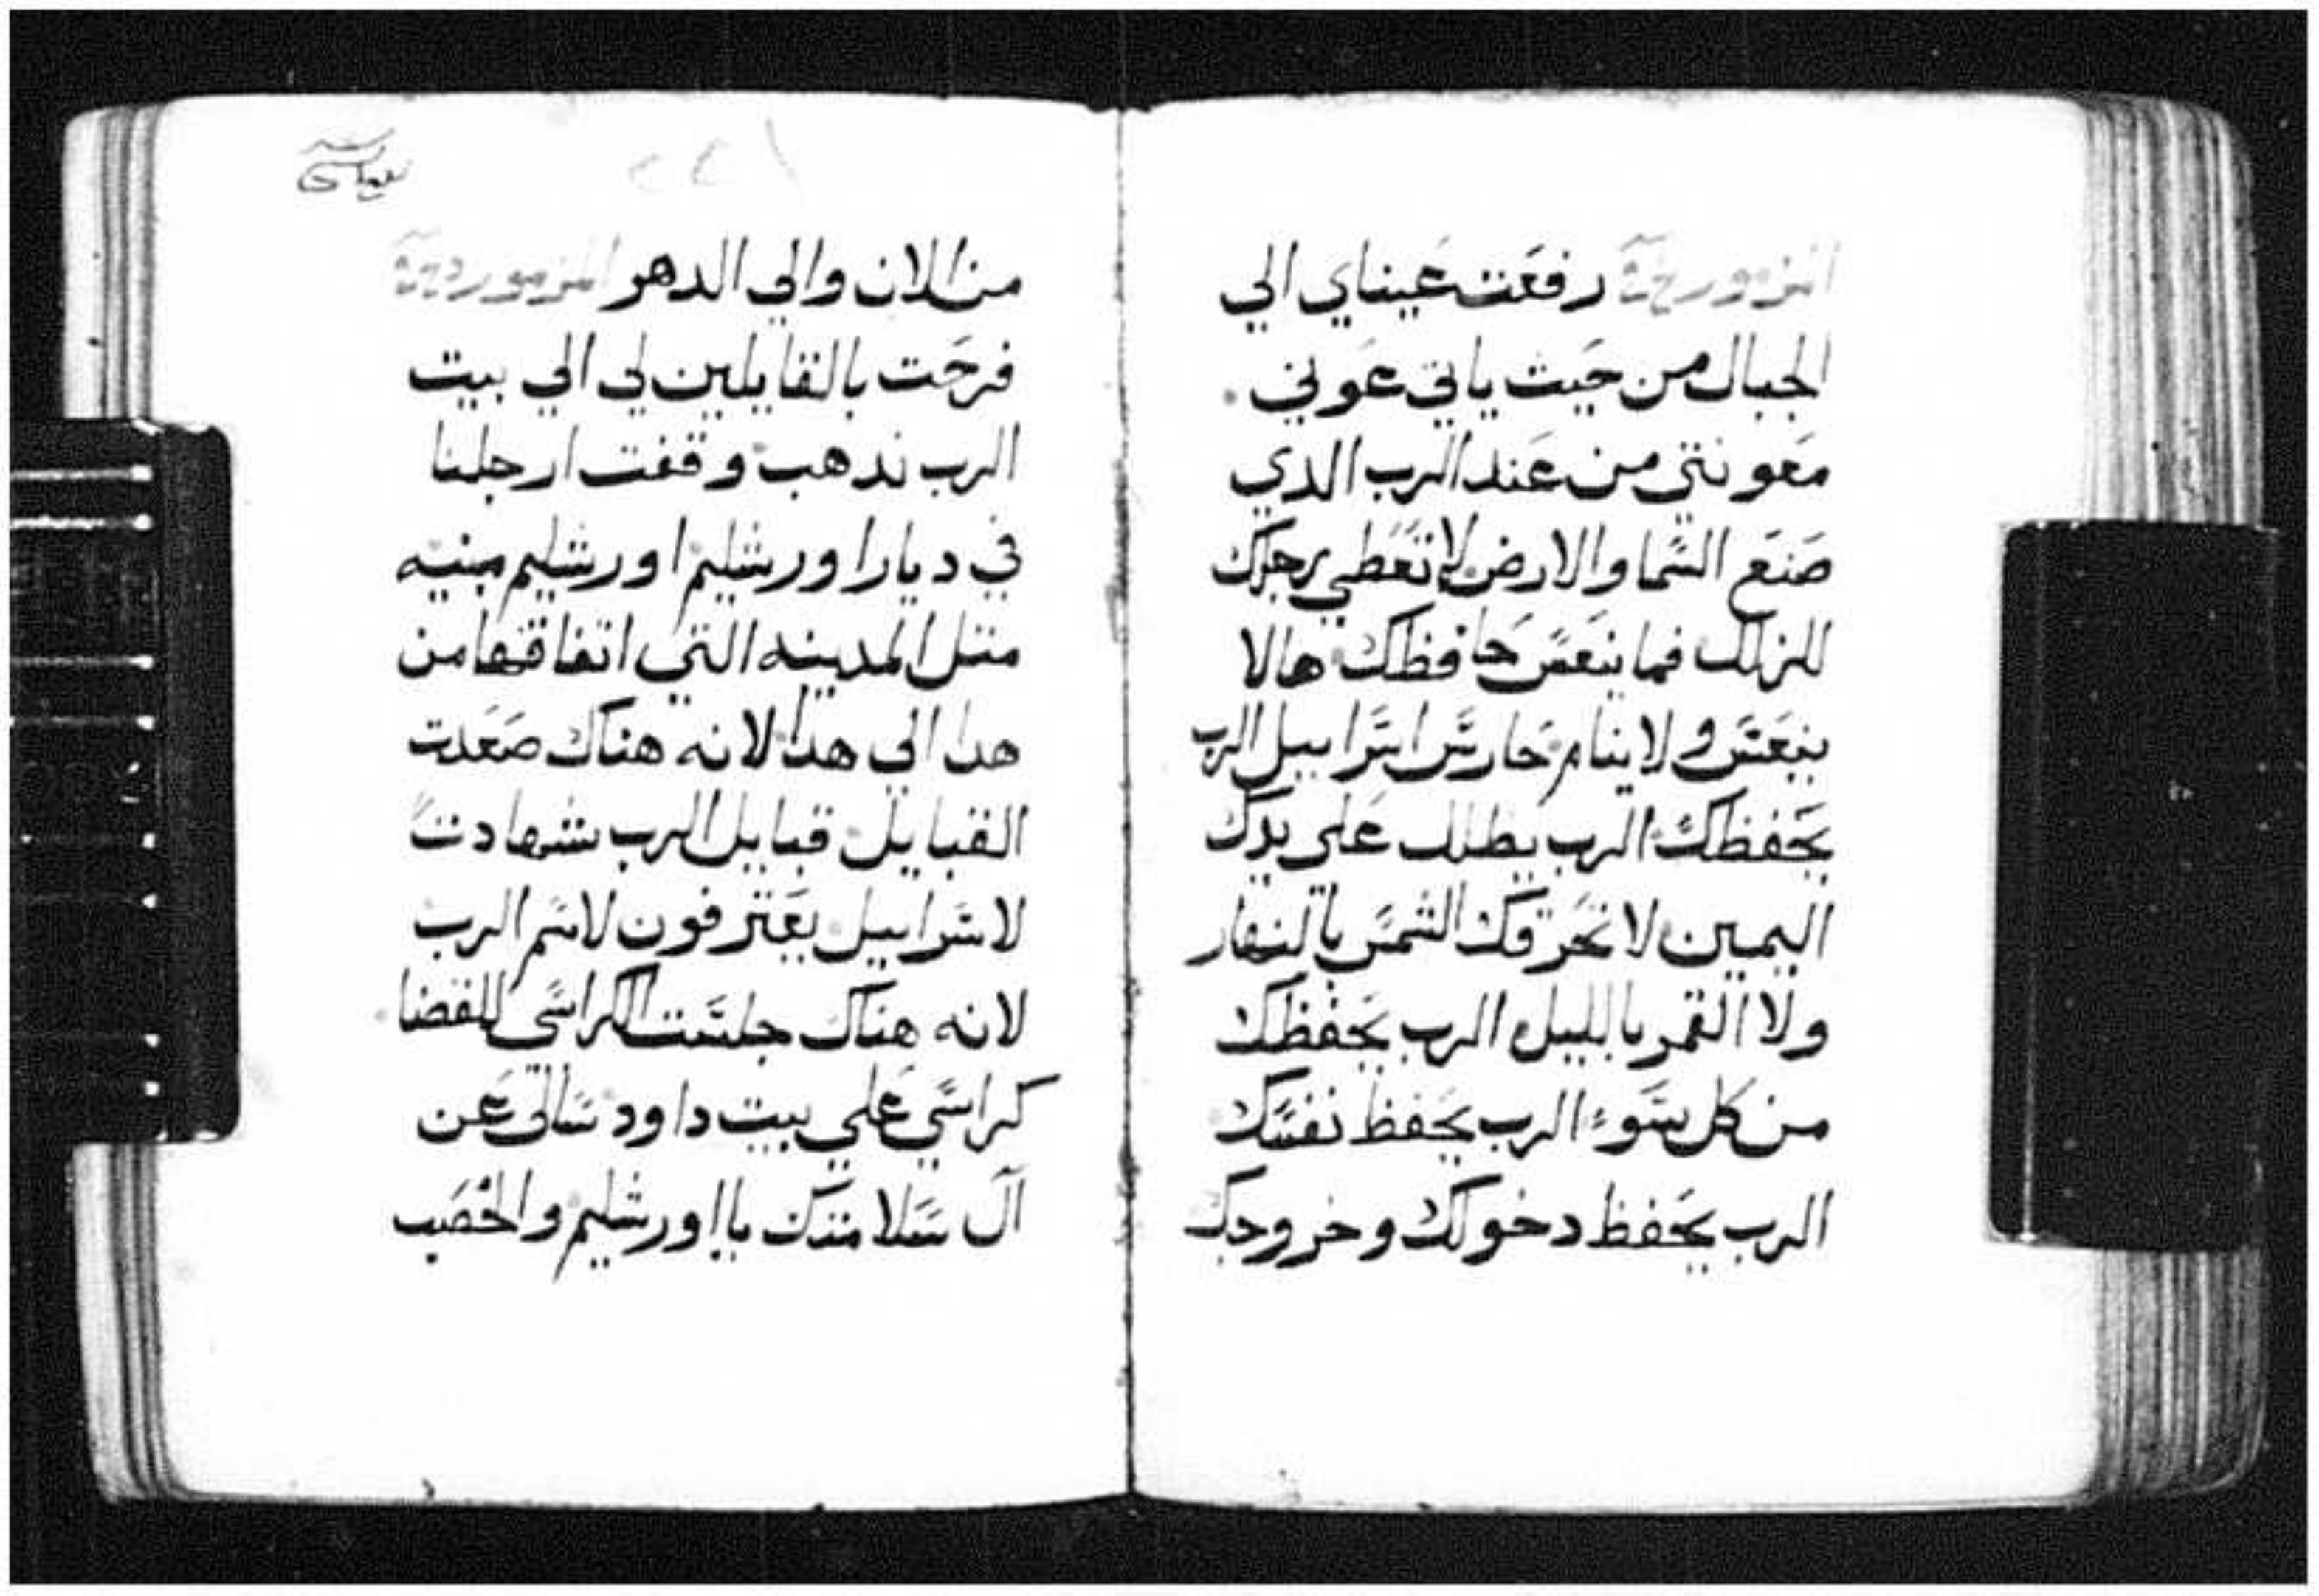 المزمور رفعت عيناي الي
الجبال من حيث ياتي عوني .
معونتي من عند الرب الدي
صنع السما والارض لا تعطي رجلك
للزلل فما ينعس حافظك هالا
ينعس ولا ينام حارس اسراييل الرب
يحفظك الرب يظلل علي يدك
اليمين لا تحرقك الشمس بالنهار
ولا القمر بالليل الرب يحفظك
من كل سوء الرب يحفظ نفسك
الرب يحفظ دخولك وخروجك
٢٢١
من الان والي الدهر المزمور
فرحت بالقايلين لي الي بيت
الرب ندهب وقفت ارجلنا
في ديار اورشليم اورشليم مبنيه
متل المدينه التي اتفاقها من
هدا الي هدا لانه هناك صعدت
القبايل قبايل الرب شهادت
لاسراييل يعترفون لاسم الرب
لانه هناك جلست الكراسي للقضا
كراسي علي بيت داود سالي عن
ال سلامتك يا اورشليم والخصب